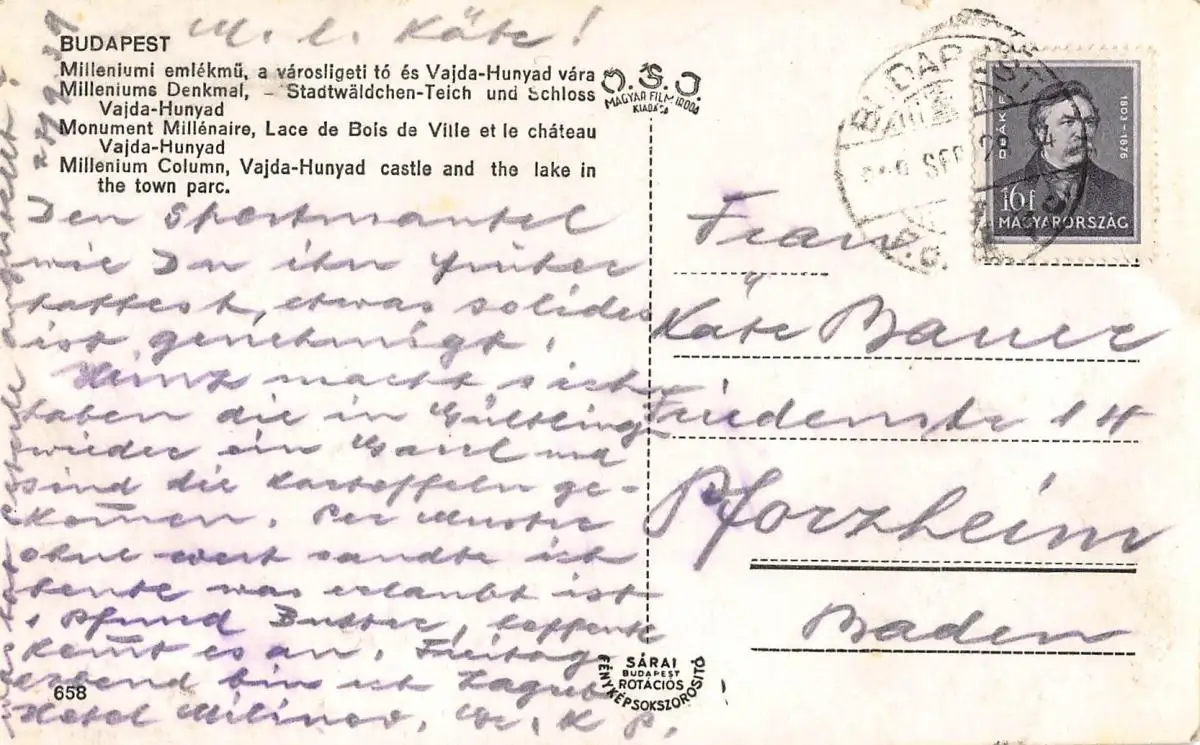 M. l. Käte!
BUDAPEST
Milleniumi emlékmű, a városligeti tó és Vajda-Hunyad vára
Milleniums Denkmal, – Stadtwäldchen-Teich und Schloss
Vajda-Hunyad
Monument Millénaire, Lace de Bois de Ville et le cháteau
Vajda-Hunyad
Millenium Column, Vajda-Hunyad castle and the lake in
the town parc.
MAGYAR FILM IRODA
KIADÁSA
Den Sportmantel
wie Du ihn früher
hattest, etwas solides
ist genehmigt.
macht sich
haben die in Gültling
wieder ein
sind die Kartoffeln ge-
kommen. Per Muster
ohne wert sandte ich
heute was erlaubt ist
Pfund Butter, hoffentl
kommt es an. Freitag
abend bin ich Zagreb
Hotel Milinov.
658
SÁRAI
BUDAPEST
ROTÁCIÓS
FÉNYKÉPSOKSZOROSITÓ
BUDAPEST
SEP 28
DEÁK F
1803-1876
16f
MAGYARORSZÁG
Frau
Käte Bauer
Friedenstr
Pforzheim
Baden